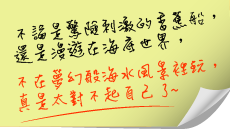 不論是驚險刺激的香蕉船，
還是漫遊在海底世界，
不在夢幻般海水風景裡玩，
真是太對不起自己了~